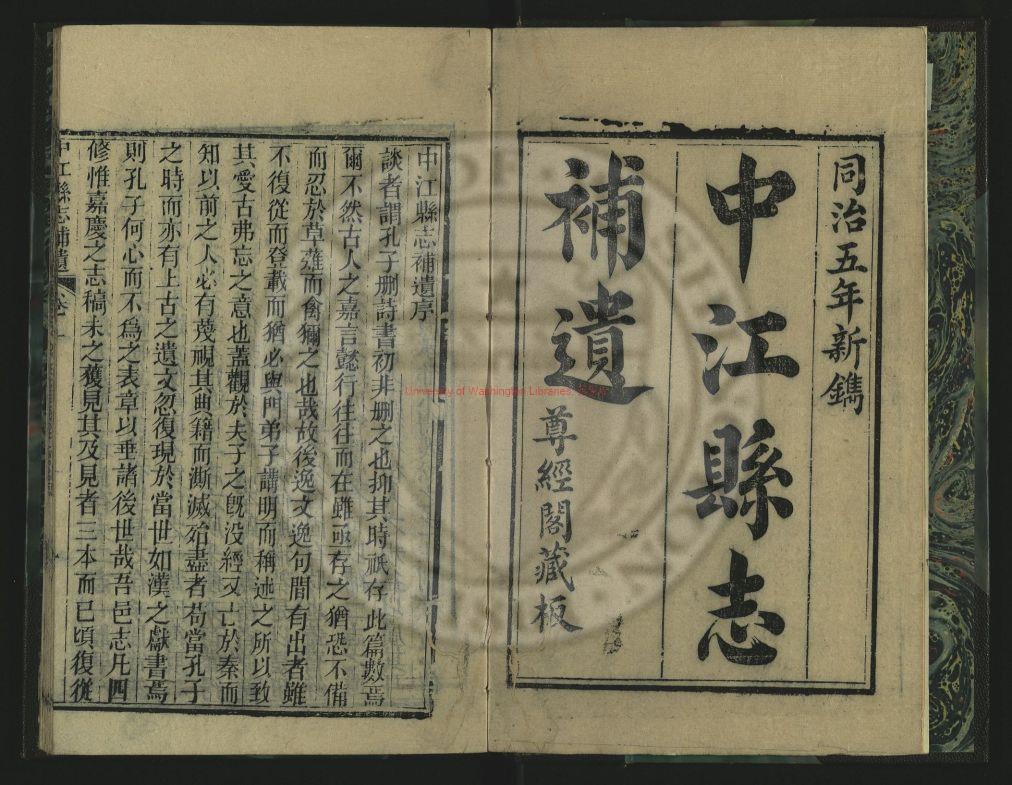 同治五年新鐫
中江縣志
補遺
尊經閣藏板
中江縣志補遺序
談者謂孔子刪詩書初非刪之也抑其時祇存此篇數焉
爾不然古人之嘉言懿行往往而在雖亟存之猶恐不備
而忍於草薙而禽獮之也哉故後逸文逸句間有出者雖
不復從而登載而猶必與門弟子講明而稱述之所以致
其愛古弗忘之意也蓋觀於夫子之旣没經又亡於秦而
知以前之人必有蔑視其典籍而澌滅殆盡者苟當孔子
之時而亦有上古之遺文忽復現於當世如漢之獻書焉
則孔子何心而不爲之表章以垂諸後世哉吾邑志凡四
修惟嘉慶之志稿未之獲見其及見者三本而已頃復從
中江縣志補遺
University of Washington Libraries